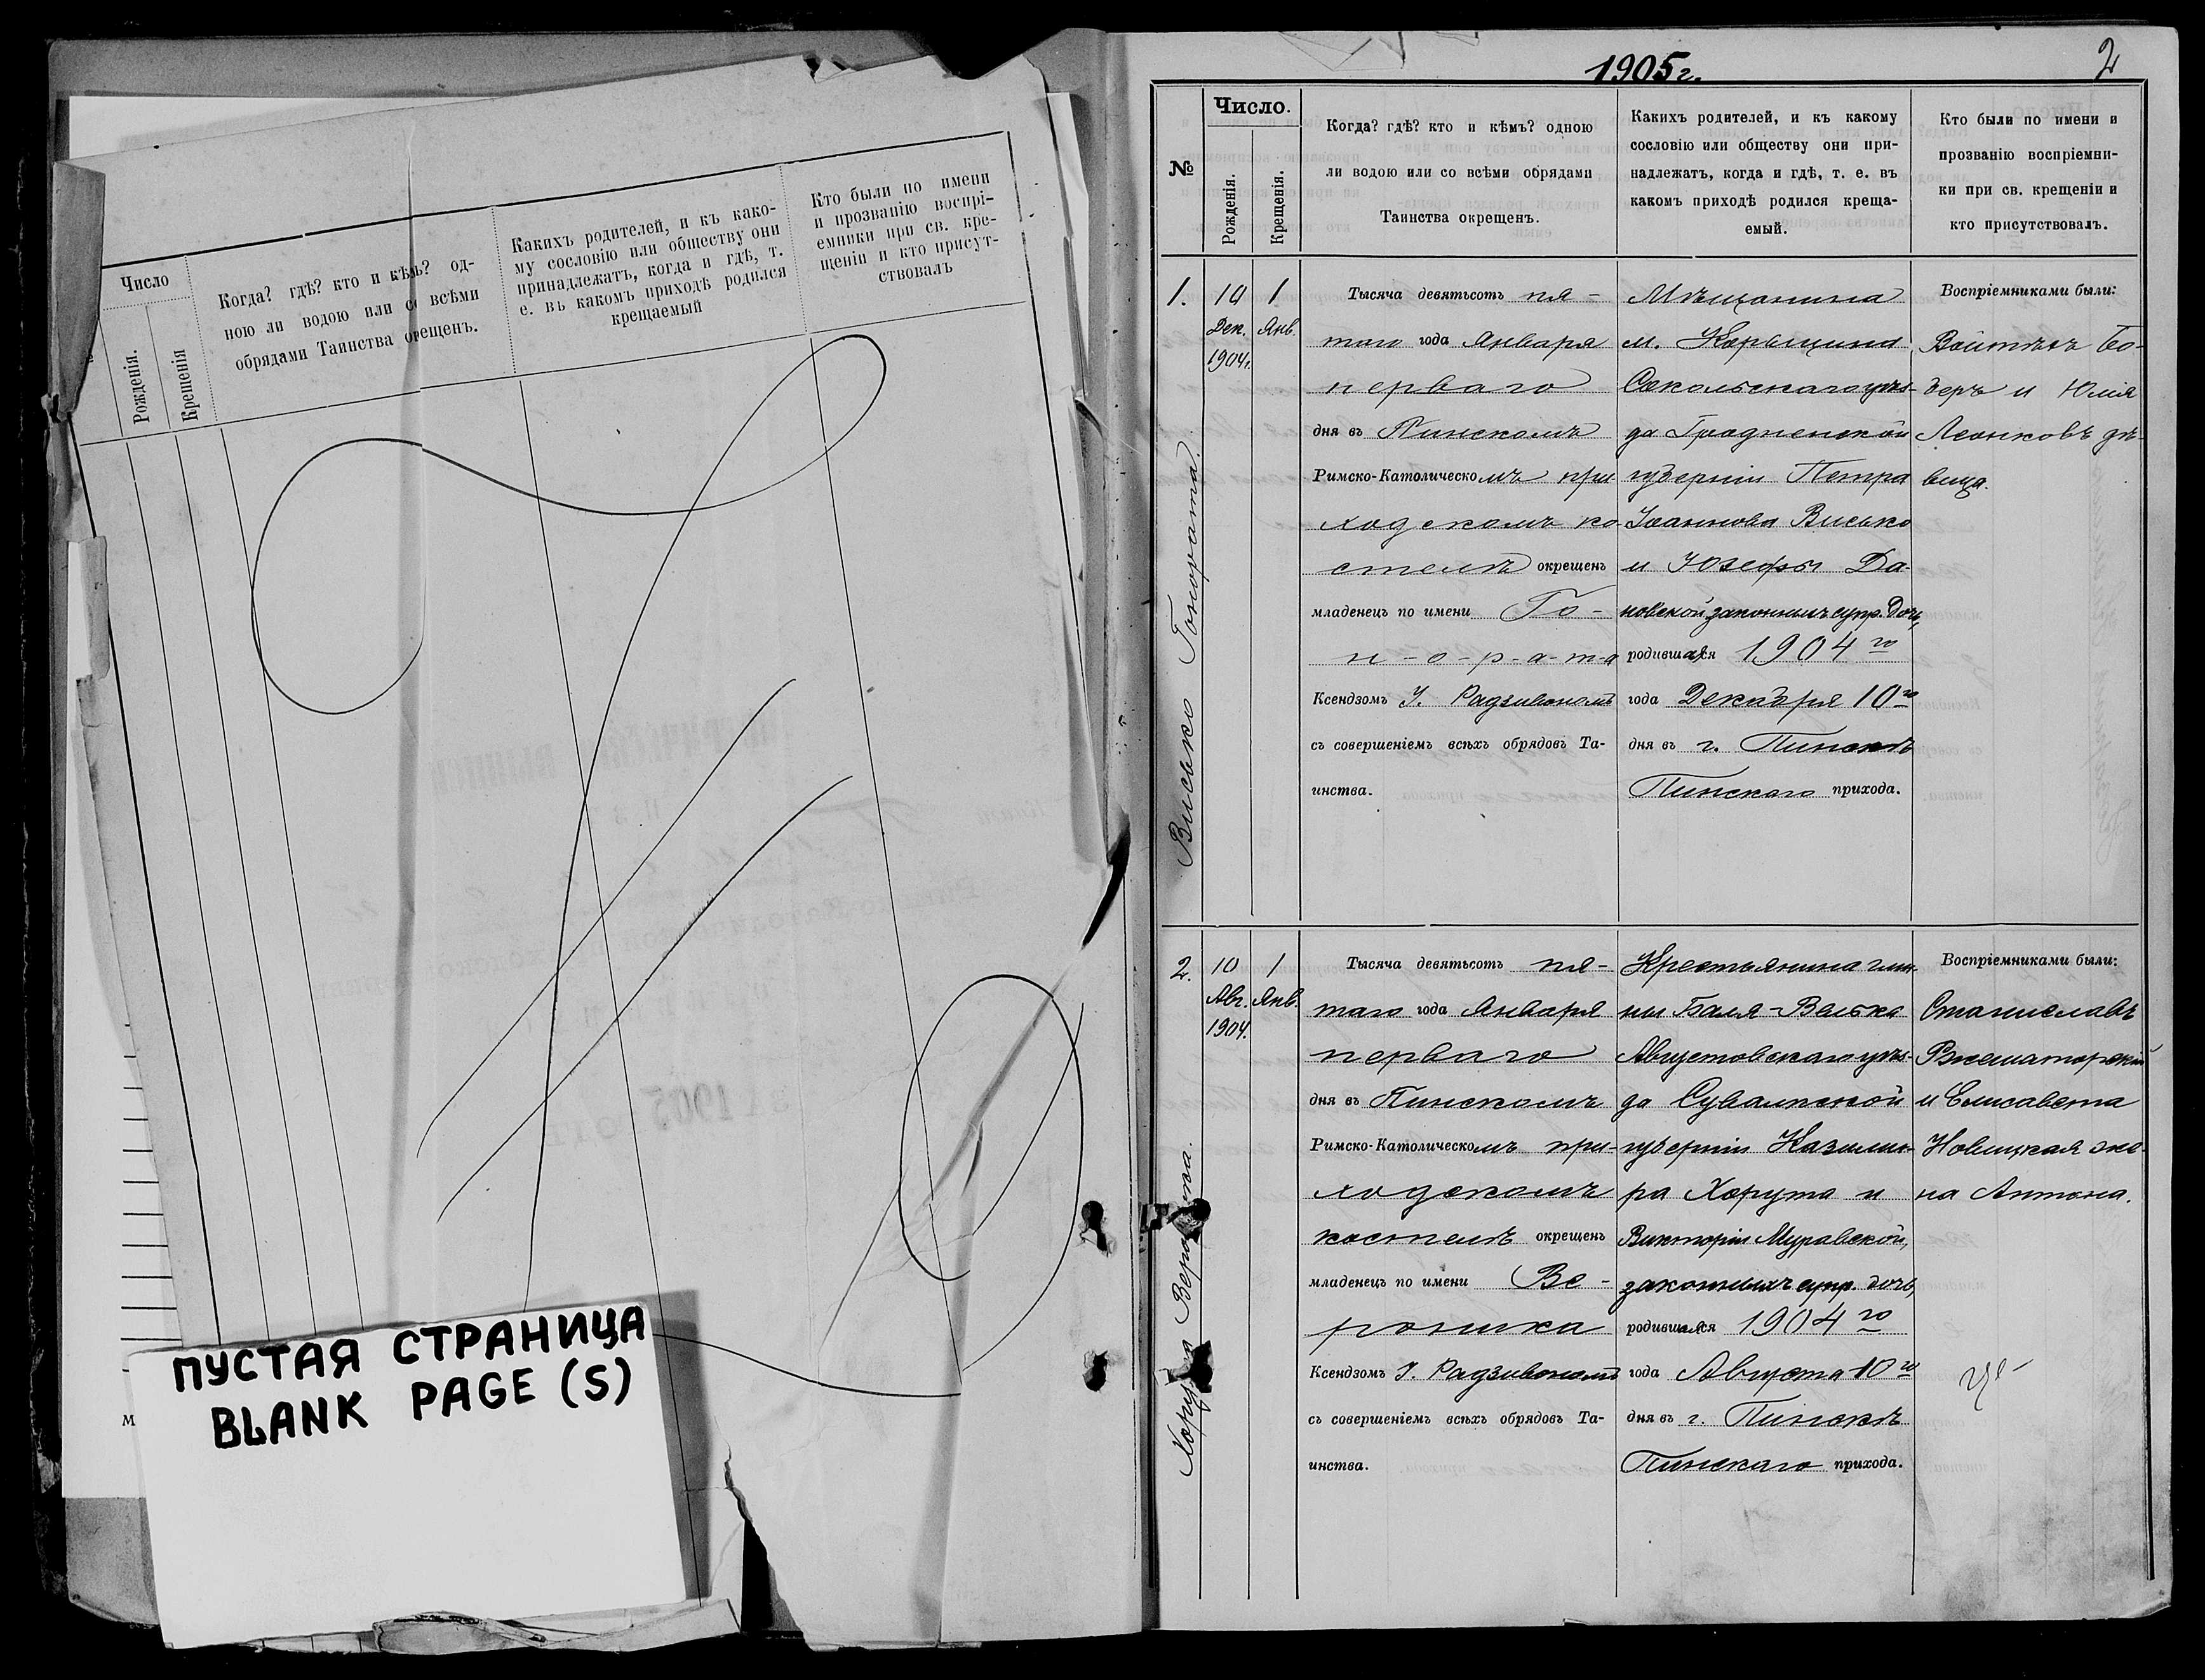 Число
Рожденія.
Крещенія
Когда? гдѣ? кто и кѣмъ? од-
ною ли водою или со всѣми
обрядами Таинства окрещенъ.
Какихъ родителей, и къ како-
му сословію или обществу они
принадлежатъ, когда и гдѣ, т.
е. въ какомъ приходѣ родился
крещаемый
Кто были по имени
и прозванію воспрі-
емники при св. кре-
щеніи и кто присут-
ствовалъ
ПУСТАЯ СТРАНИЦА
BLANK PAGE (S)
м
1905 г.
2
№
Число.
Рожденія.
Крещенія.
Когда? гдѣ? кто и кѣмъ? одною
ли водою или со всѣми обрядами
Таинства окрещенъ.
Какихъ родителей, и къ какому
сословію или обществу они при-
надлежатъ, когда и гдѣ, т. е. въ
какомъ приходѣ родился креща-
емый.
Кто были по имени и
прозванію воспріемни-
ки при св. крещеніи и
кто присутствовалъ.
1.
Висько Гонората.
10
Дек.
1904г.
1
Янв.
Тысяча девятьсотъ пя-
таго года Января
перваго
дня въ Пинскомъ
Римско-Католическомъ при-
ходскомъ ко-
стелѣ окрещенъ
младенецъ по имени Го-
н-о-р-а-т-а
Ксендзомъ І. Радзивономъ
съ совершеніемъ всѣхъ обрядовъ Та-
инства.
Мѣщанина
м. Корыцина
Сокольскаго уѣз-
да Гродненской
губерніи Петра
Іоаннова Висько
и Юзефы Да-
новской законныхъ супр. дочь,
родившаяся 1904 го
года Декабря 10 го
дня въ г. Пинскѣ
Пинскаго прихода.
Воспріемниками были:
Войтѣхъ Бо-
беръ и Юлія
Леонковъ дѣ-
вица.
2.
Хорута Вероника.
10
Авг.
1904.
1
Янв.
Тысяча девятьсотъ пя-
таго года Января
перваго
дня въ Пинскомъ
Римско-Католическомъ при-
ходскомъ
костелѣ окрещенъ
младенецъ по имени Ве-
роника
Ксендзомъ І. Радзивономъ
съ совершеніемъ всѣхъ обрядовъ Та-
инства.
Крестьянина гми-
ны Баля-Велька
Августовскаго уѣз-
да Сувалкской
губерніи Казими-
ра Хорута и
Викторіи Муравской,
законныхъ супр. дочь,
родившаяся 1904 го
года Августа 10 го
дня въ г. Пинскѣ
Пинскаго прихода.
Воспріемниками были:
Станиславъ
и Елисавета
Новицкая же-
на Антона.